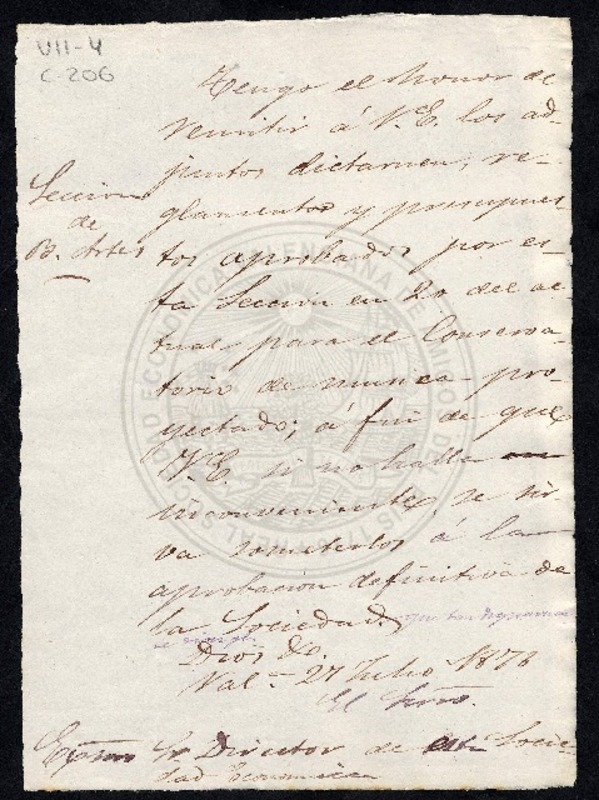 VII-4
C-206
Seccion
de
B. Artes
Tengo el honor de
remitir á V.E. los ad-
juntos dictamen, re-
glamento y presupues-
tos aprobados por es-
ta Sección en 20 del ac-
tual para el Conserva-
torio de musica pro-
yectado; á fin de que
V.E. si no halla
inconveniente, se sir-
va someterlos á la
aprobacion definitiva de
la Sociedad.
Dios &c.
Val.ª 27 Julio 1878
El Srio.
Exmo Sr Director de esta Socie-
dad Economica
REAL SOCIEDAD ECONOMICA VALENCIANA DE AMIGOS DEL PAIS 1776